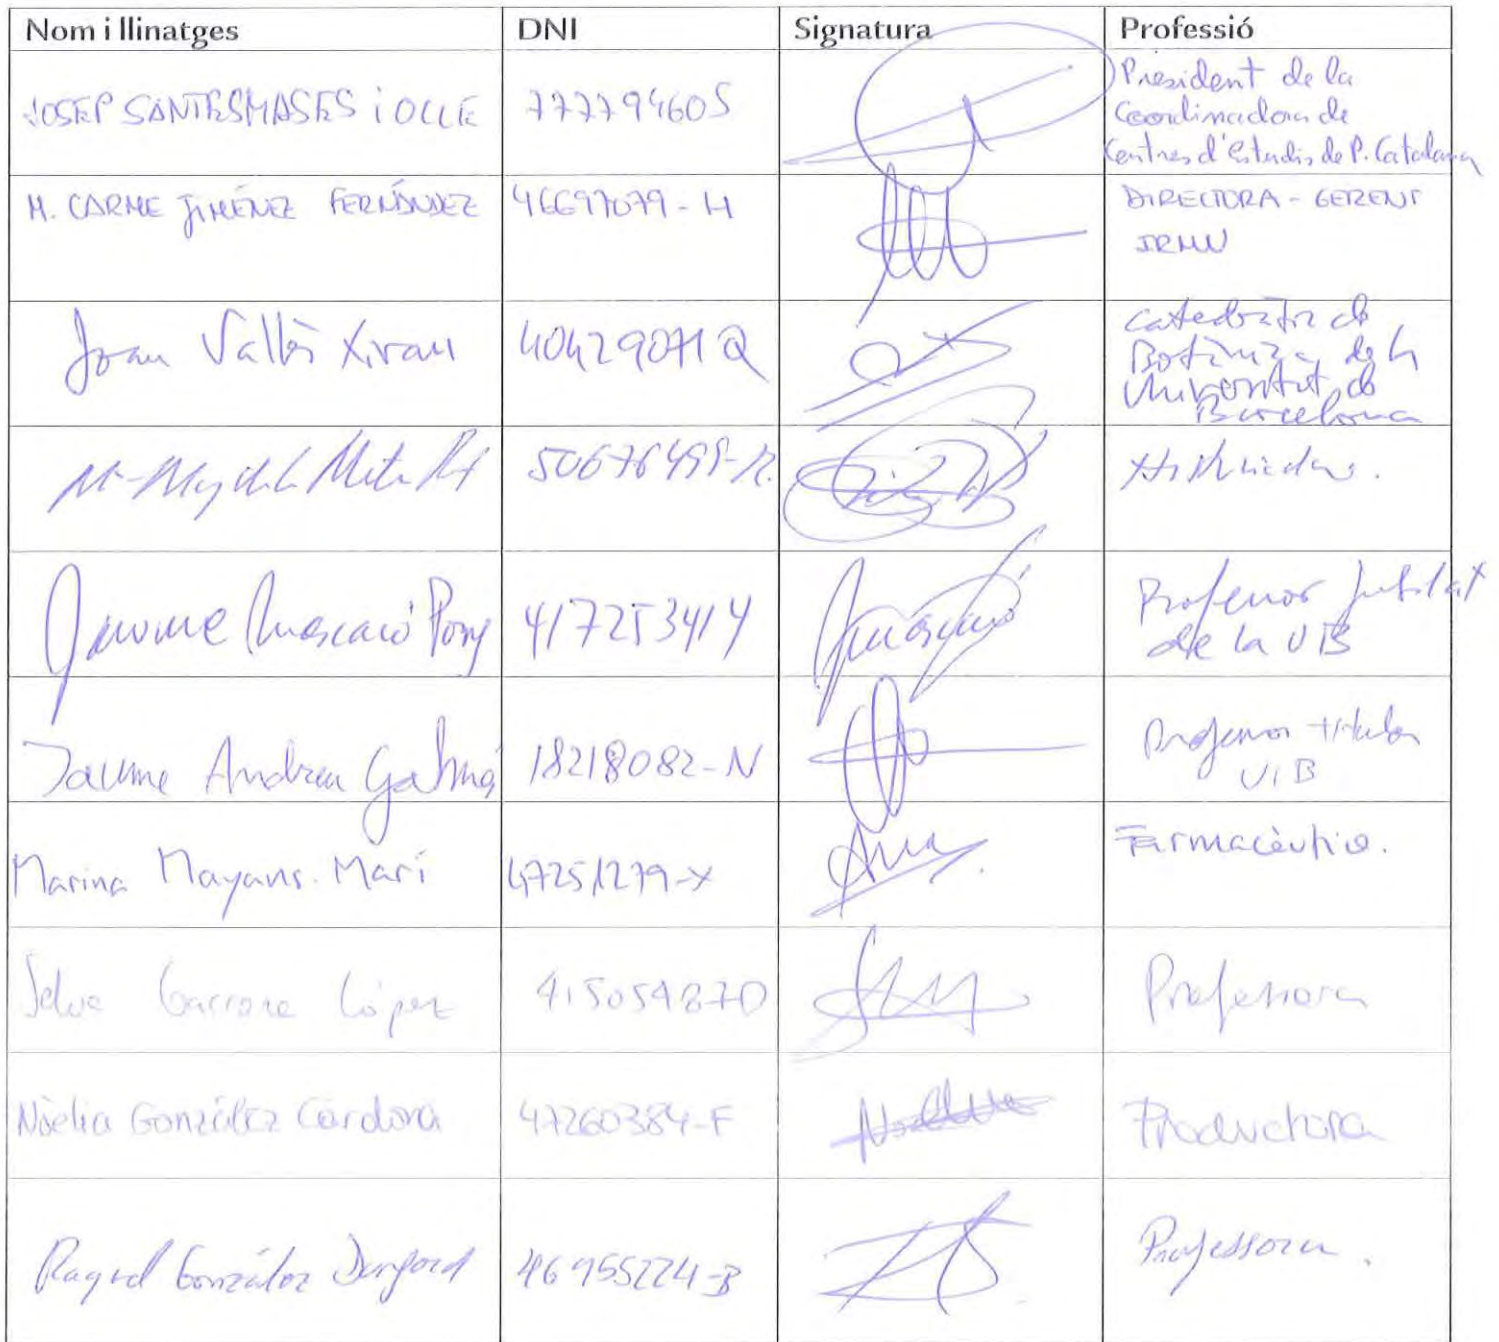 Nom i llinatges DNI Signatura Professió
JOSEP SANTESMASES i OLLÉ 77779460S President de la
Coordinadora de
Centres d'Estudis de P. Catalana
M. CARME JIMÉNEZ FERNÁNDEZ 46697079-H DIRECTORA - GERENT
IRMU
Joan Vallès Xirau 40429071Q Catedràtic de
Botànica de la
Universitat de
Barcelona
Jaume Mascaró Pons 41725341Y Professor jubilat
de la UIB
Jaume Andreu Galmés 18218082-N Professor titular
UIB
Marina Mayans Marí 47251279-X Farmacèutica.
López Professora
Noelia González Cardona 47260384-F Productora
Raquel González 46955224-B Professora.